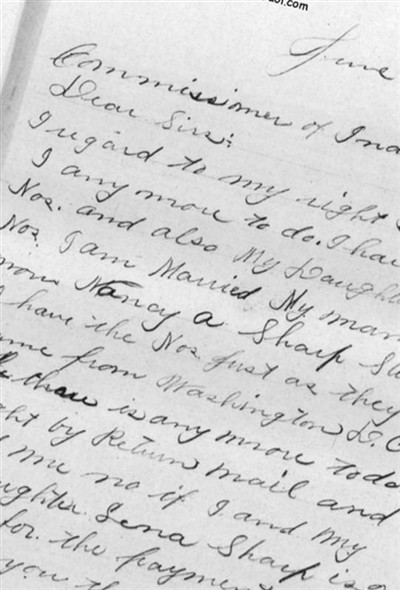 June
Commissioner of Ind
Dear Sir:
I regard to my right
I any more to do. I hav
Nos. and also My Daught
Nos. I am Married My mar
Nancy a Sharp
have the Nos. just as they
from Washington D.C
there is any more todo
by Return mail and
me no if I and my
Lena Sharp is
for the paymen
you th